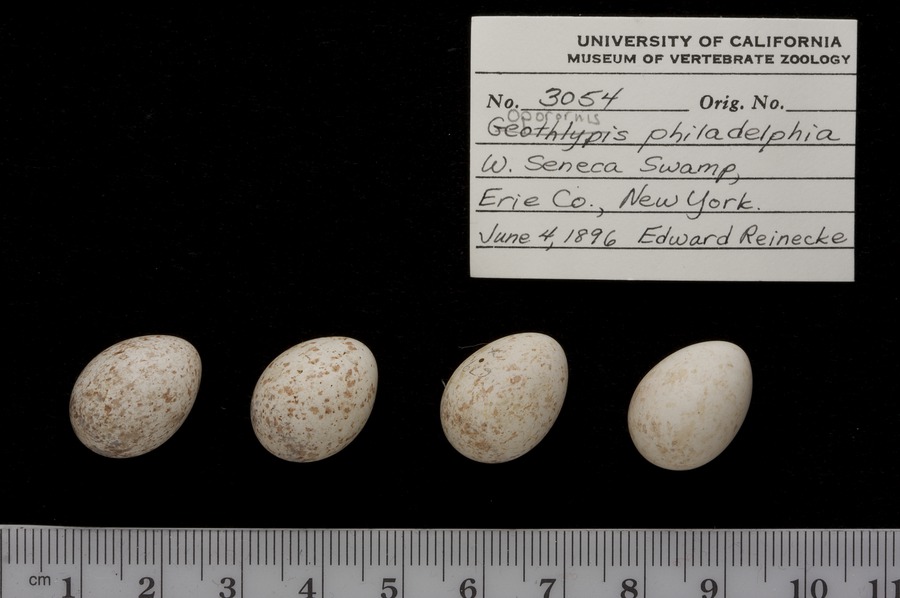 UNIVERSITY OF CALIFORNIA
MUSEUM OF VERTEBRATE ZOOLOGY
No. 3054 Orig. No.
Oporornis
Geothlypis philadelphia
W. Seneca Swamp,
Erie Co., New York.
June 4, 1896 Edward Reinecke
cm 1 2 3 4 5 6 7 8 9 10 11